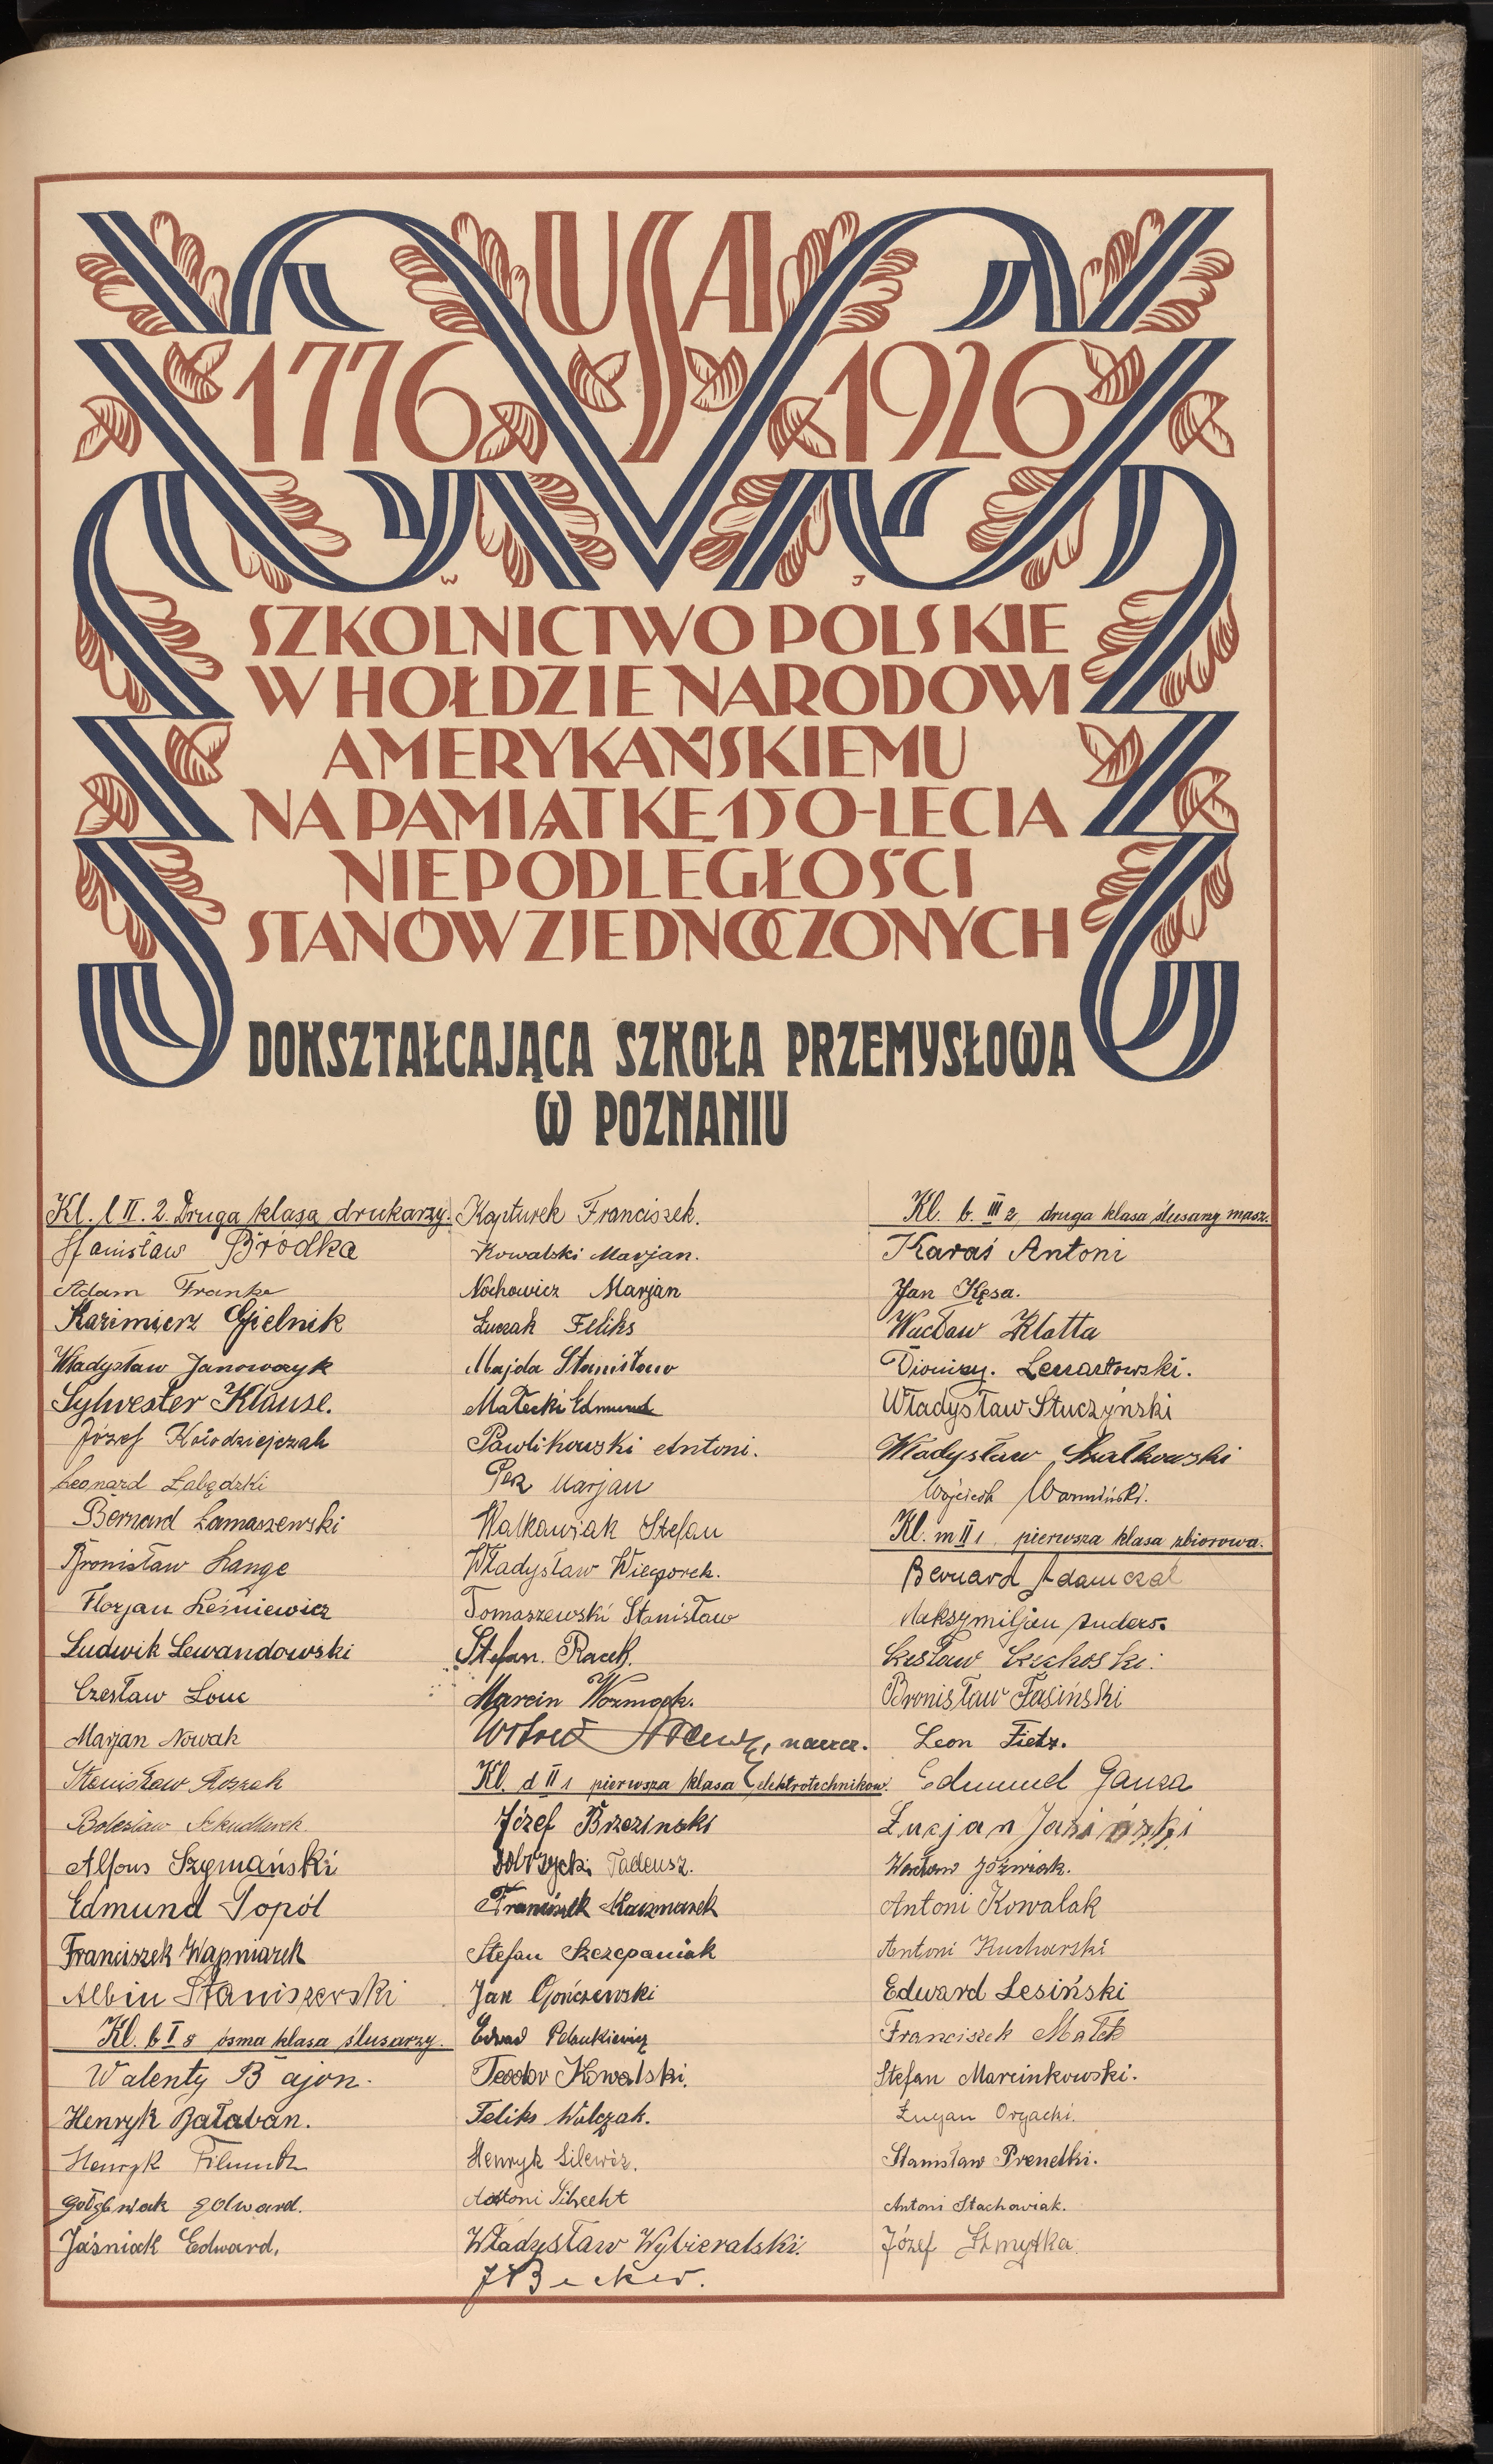 USA
1776 1926
W J
SZKOLNICTWO POLSKIE
W HOŁDZIE NARODOWI
AMERYKAŃSKIEMU
NA PAMIĄTKĘ 150-LECIA
NIEPODLEGŁOŚCI
STANÓW ZJEDNOCZONYCH
DOKSZTAŁCAJĄCA SZKOŁA PRZEMYSŁOWA
W POZNANIU
Kl. l II. 2. Druga klasa drukarzy.
Stanisław Bródka
Adam Franke
Kazimierz Gielnik
Władysław Janowczyk
Sylwester Klause.
Józef Kołodziejczak
Leonard Łabędzki
Bernard Łamaszewski
Bronisław Lange
Florjan Leśniewicz
Ludwik Lewandowski
Czesław Louc
Marjan Nowak
Stanisław
Bolesław Szkudlarek
Alfons Szymański
Edmund Topól
Franciszek Wapniarek
Albin Staniszewski
Kl. b I 8 ósma klasa ślusarzy.
Walenty Bajon.
Henryk Bałaban.
Henryk
Edward.
Jaśniak Edward,
Kapturek Franciszek.
Kowalski Marjan.
Nochowicz Marjan
Łuczak Feliks
Majda Stanisław
Małecki Edmund
Pawlikowski Antoni.
Marjan
Walkawiak Stefan
Władysław Wieczorek.
Tomaszewski Stanisław
Stefan. Racek.
Marcin Woźniack.
Witold
Kl. d II 1 pierwsza klasa elektrotechników.
Józef Brzeziński
Dobrzycki Tadeusz.
Franciszek Kaczmarek
Stefan Szczepaniak
Jan Gończewski
Edward
Teodor Kowalski.
Feliks Walczak.
Henryk Silewicz.
Antoni
Władysław Wybieralski.
J Becker.
Kl. b. III 2 druga klasa ślusarzy masz.
Karaś Antoni
Jan Kęsa.
Wacław Klatta
Dionizy. Lenartowski.
Władysław Stuczyński
Władysław Szałkowski
Wojciech Warmiński.
Kl. m II 1 pierwsza klasa zbiorowa.
Bernard Adamczak
Maksymiljan Anders.
Bronisław Fasiński
Leon Fietz.
Edmund Gauza
Łucjan Jasiński
Wacław Jóźwiak.
Antoni Kowalak
Antoni Kucharski
Edward Lesiński
Franciszek Małek
Stefan Marcinkowski.
Orzacki.
Stanisław Prenetki.
Antoni Stachowiak.
Józef Szmytka.